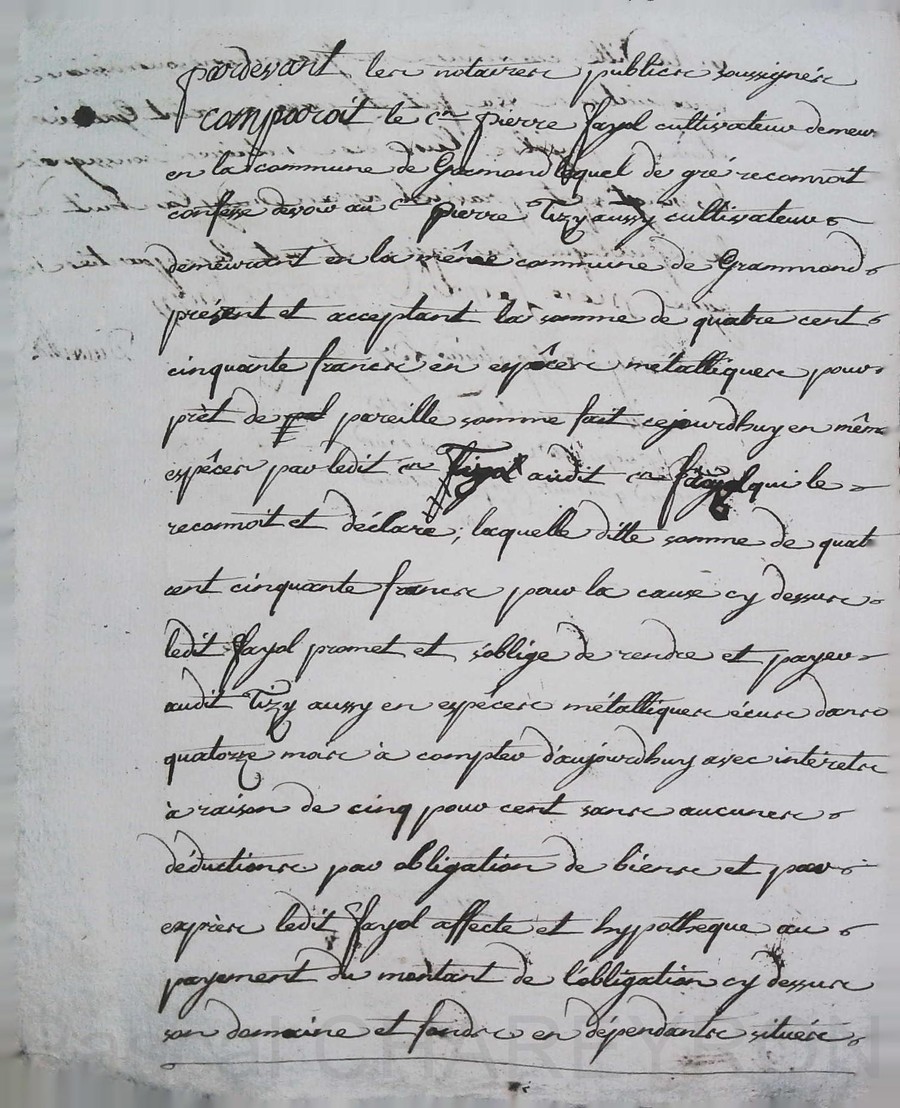 pardevant les notaires publics soussignés
comparoit le cn pierre fayol cultivateur demeur
en la commune de Gramond lequel de gré reconnoit
confesse devoir au cn pierre Tizy aussy cultivateur
demeurant en la même commune de Grammond
présent et acceptant la somme de quatre cent
cinquante francs en espêces métalliques pour
prèt de pareille somme fait cejourdhuy en même
espêces par ledit cn audit cn fayol qui le
reconnoit et déclare ; laquelle ditte somme de quat
cent cinquante francs pour la cause cy dessus
ledit fayol promet et s'oblige de rendre et payer
audit Tizy aussy en espéces métalliques écus dans
quatorze mois à compter d'aujourdhuy avec intérets
à raison de cinq pour cent sans aucunes
déductions par obligation de biens et par
exprès ledit fayol affecte et hypotheque au
payement du montant de l'obligation cy dessus
son domaine et fonds en dépendants situés